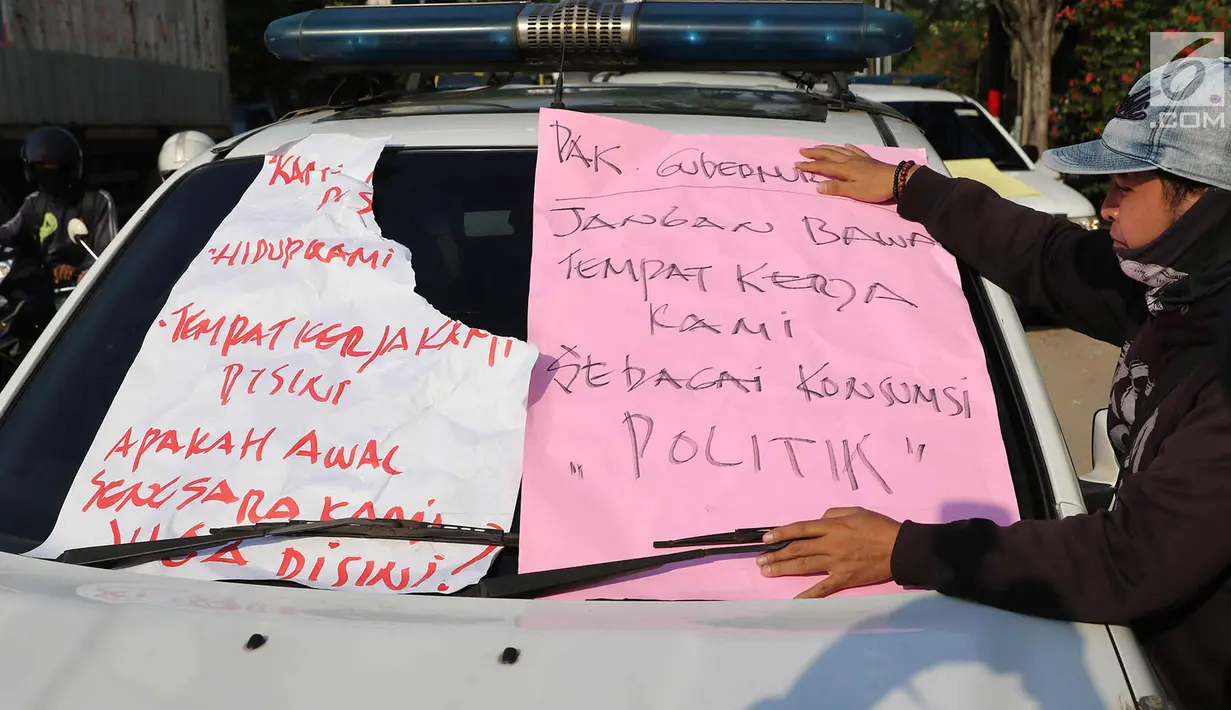 "KAMI
DISI
"HIDUP KAMI
• TEMPAT KERJA KAMI
DISINI
APAKAH AWAL
SENGSARA KAMI
JUGA DISINI!
PAK. GUBERNUR
JANGAN BAWA
TEMPAT KERJA
KAMI
SEBAGAI KONSUMSI
"POLITIK"
6
.COM